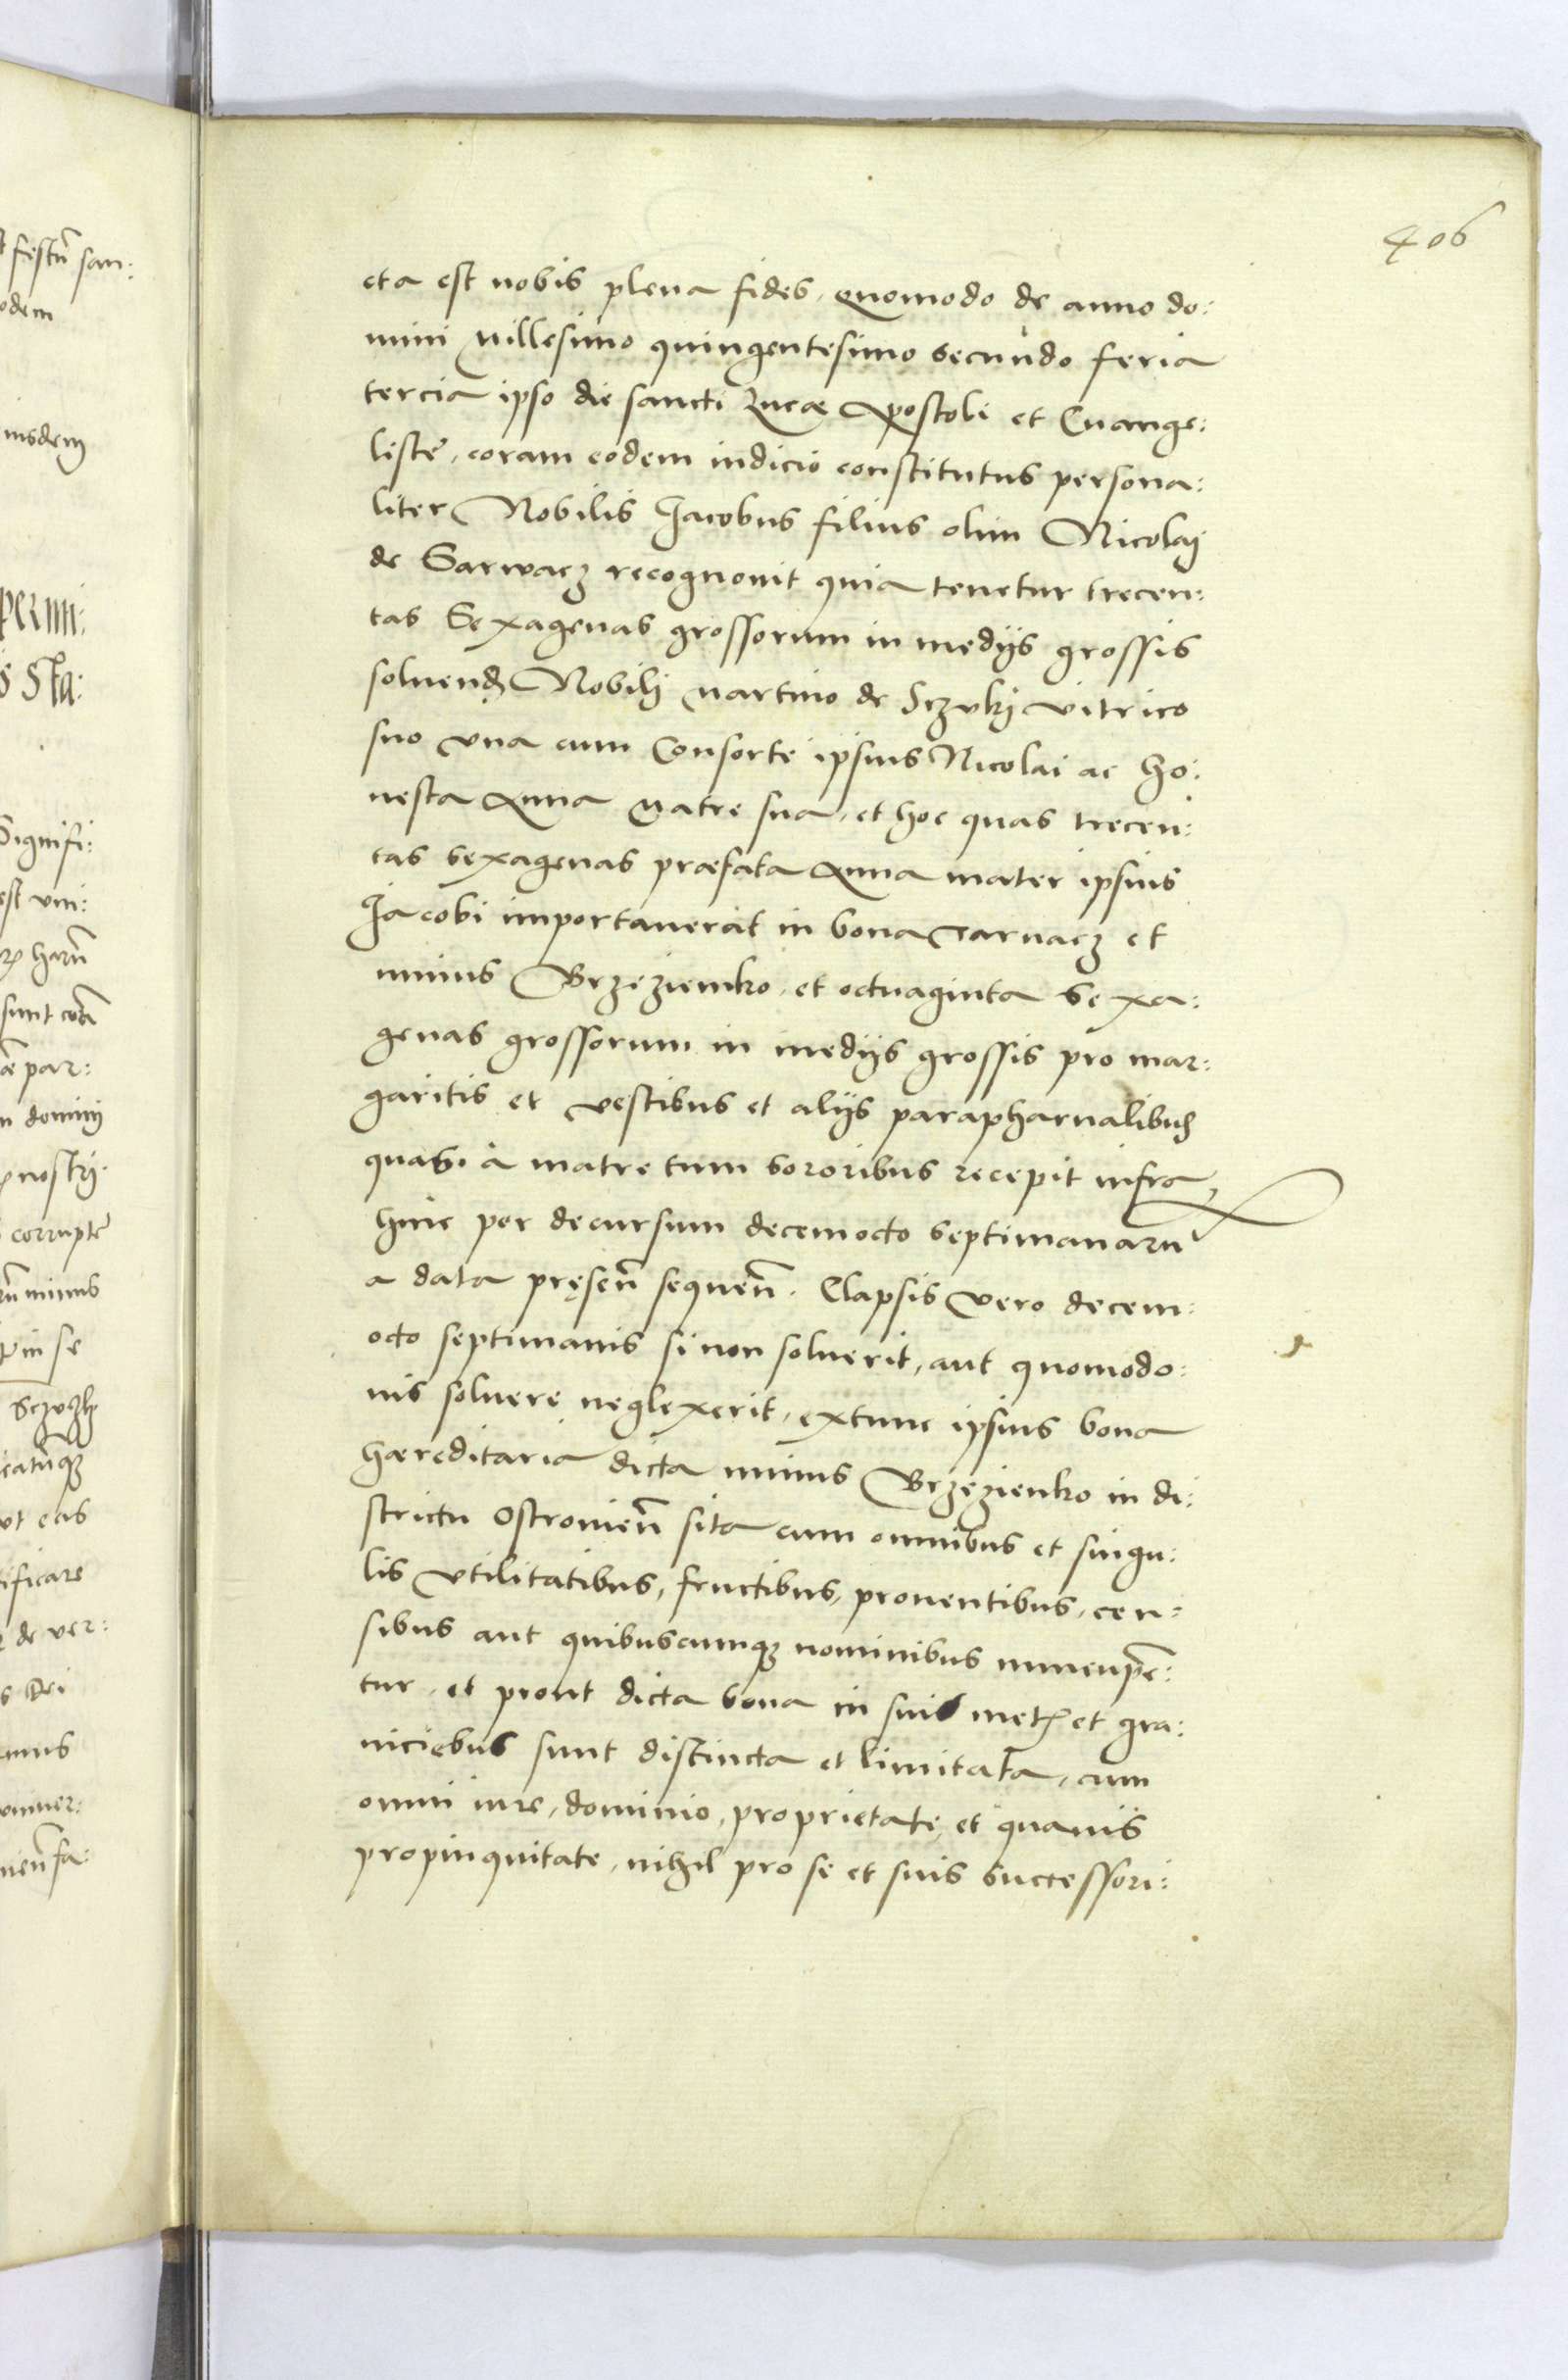 406
cta est nobis plena fides, quomodo de anno do:
mini Millesimo quingentesimo secundo feria
tercia ipso die sancti Lucæ Apostoli et Euange:
listę, coram eodem iudicio constitutus persona:
liter Nobilis Jacobus filius olim Nicolaj
de Sarwacz recognouit quia tenetur trecen:
tas Sexagenas grossorum in medijs grossis
soluend Nobilj Martino de Sczukj vitrico
suo vna cum Consorte ipsius Nicolai ac ho:
nesta Anna Matre sua, et hoc quas trecen:
tas sexagenas præfata Anna mater ipsius
Jacobi importauerat in bona Tarnacz et
minus Brzezienko, et octuaginta sexa:
genas grossorum in medijs grossis pro mar:
garitis et vestibus et alijs parapharnalibus
quasi a matre tum sororibus recepit infra
hinc per decursum decemocto septimanarũ
a data pręseñ sequeñ. Elapsis vero decem:
octo septimanis si non soluerit, aut quomodo:
uis soluere neglexerit, extunc ipsius bona
hæreditaria dicta minus Brzezienko in di:
strictu Ostrouieñ sita cum omnibus et singu:
lis vtilitatibus, fructibus, prouentibus, cen:
sibus aut quibuscumq nominibus nuncupẽ:
tur, et prout dicta bona in suis met et gra:
niciebus sunt distincta et limitata, cum
omni iure, dominio, proprietate, et quauis
propinquitate, nihil pro se et suis successori:
festũ san:
odem
iusdem
permi:
s Sta:
Signifi:
est vni:
harũ
sunt
æ par:
n dominj
nostrj
corruptę
rũ minus
in se
catũq
vt eas
tificare
de ver:
s Dei
vniuer: